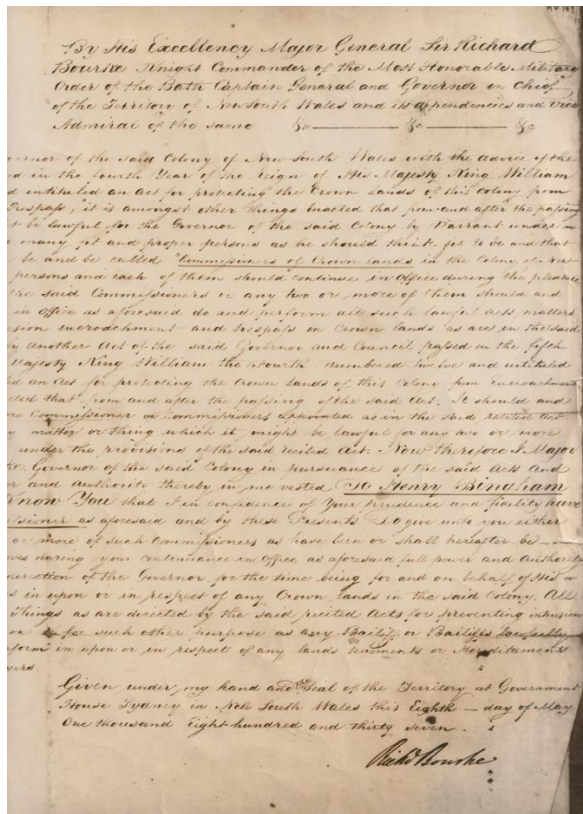 By His Excellency Major General Sir Richard
Bourke Knight Commander of the Most Honorable Military
Order of the Bath Captain General and Governor in Chief
of the Territory of New South Wales and its dependencies and Vice
Admiral of the same &c &c &c
ernor of the said Colony of New South Wales with the advice of the
ed in the fourth Year of the Reign of His Majesty King William
d intituled an act for protecting the Crown Lands of this Colony from
Trespass, it is amongst other things enacted that from and after the passing
t be lawful for the Governor of the said Colony by Warrant under
or any fit and proper persons as he should think fit to be and that
be and be called "Commissioners of Crown lands in the Colony of New
persons and each of them should continue in Office during the pleasure
the said Commissioners or any two or more of them should and
in office as aforesaid do and perform all such lawful acts matters
upon encroachment and trespass on Crown lands as are in the said
by another Act of the said Governor and Council passed in the fifth
Majesty King William the Fourth numbered twelve and intituled
ed an Act for protecting the Crown Lands of this Colony from encroachment
cted that from and after the passing of the said Act. It should and
ne Commissioner or Commissioners as in the said recited Act
y matter or thing which it might be lawful for any two or more
under the provisions of the said recited Act. Now therefore I Major
&c. Governor of the said Colony in pursuance of the said Acts and
er and authority thereby in me vested To Henry Bingham
Know You that I in confidence of Your prudence and fidelity have
issioner as aforesaid and by these Presents Do give unto you either
or more of such Commissioners as have been or shall hereafter be
ses during your continuance in Office as aforesaid full power and authority
direction of the Governor for the time being for and on behalf of His
s in upon or in respect of any Crown lands in the said Colony. All
things as are directed by the said recited Acts for preventing intrusion
on for such other purpose as any Bailiff or Bailiffs lawfully
form in upon or in respect of any lands tenements or Hereditaments
Given under my hand and Seal of the Territory at Government
House Sydney in New South Wales this Eighth day of May
One thousand Eight hundred and thirty seven.
Richd Bourke